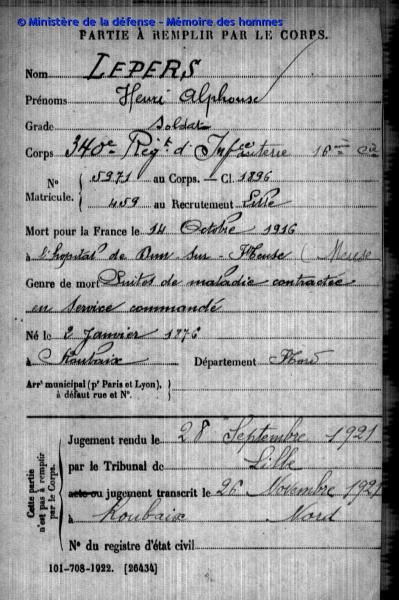 © Ministère de la défense - Mémoire des hommes
PARTIE À REMPLIR PAR LE CORPS.
Nom LEPERS
Prénoms Henri Alphonse
Grade Soldat
Corps 340e Régt d'Infanterie 16ème Cie
N° Matricule. { 5971 au Corps. — Cl. 1896
459 au Recrutement Lille
Mort pour la France le 14 Octobre 1916
à l'hopital de Dun-sur-Meuse (Meuse
Genre de mort Suites de maladie contractée
en service commandé
Né le 2 Janvier 1876
à Roubaix Département Nord
Arrt municipal (pr Paris et Lyon), à défaut rue et N°. }
Cette partie n'est pas à remplir par le Corps.
Jugement rendu le 28 Septembre 1921
par le Tribunal de Lille
acte ou jugement transcrit le 26 Novembre 1921
à Roubaix Nord
N° du registre d'état civil
101-708-1922. [26434]